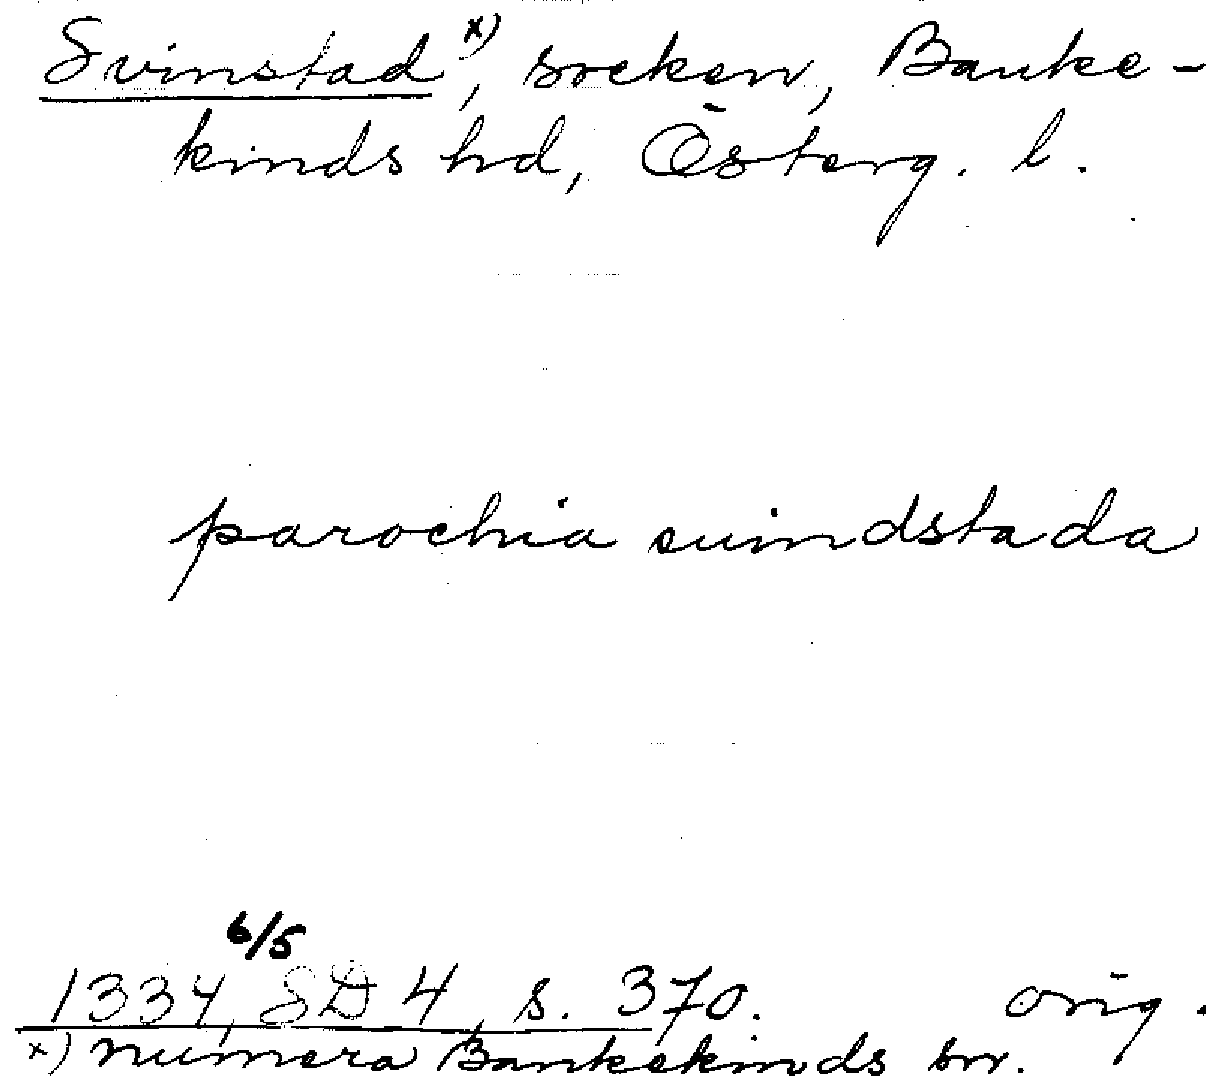 Svinstad x), socken, Banke-
kinds hd, Österg. l.
parochia suindstada
6/5
1334, SD 4, s. 370. orig.
x) numera Bankekinds sn.